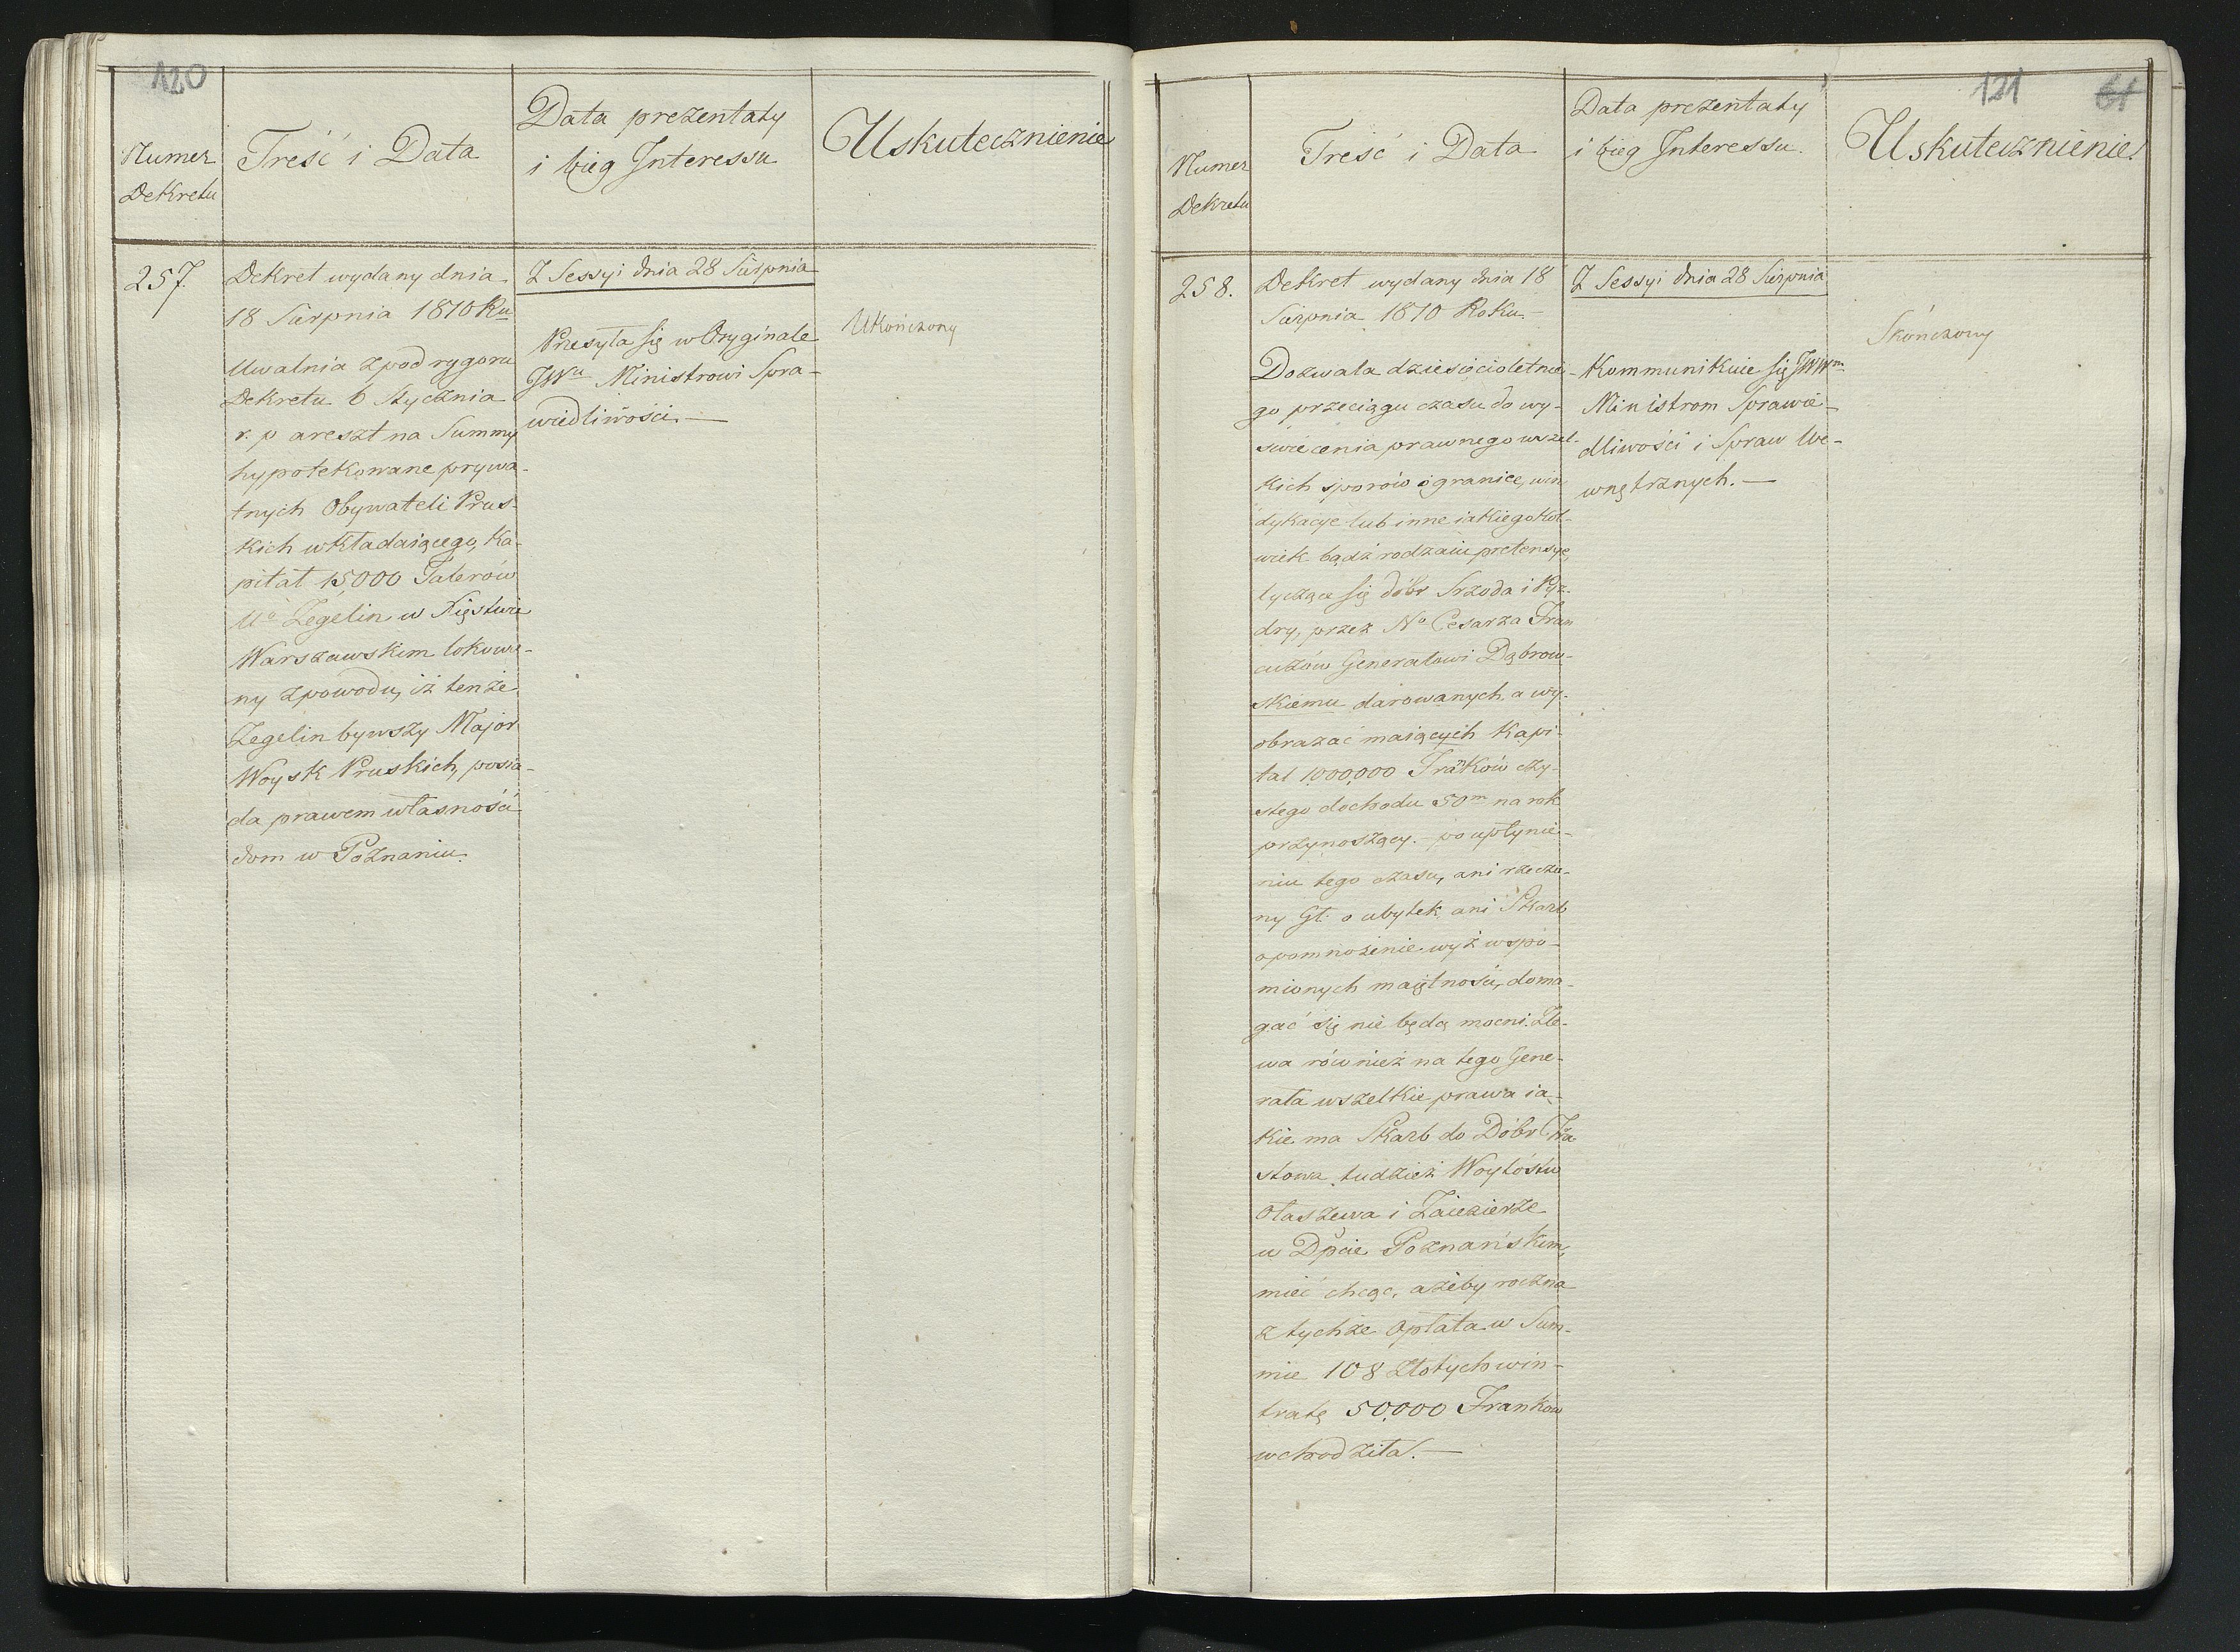 120
Numer
Dekretu
Treść i Data
Data prezentaty
i bieg Interessu
Uskutecznienie
257.
Dekret wydany dnia
18 Sierpnia 1810 Ru
Uwalnia zpod rygoru
Dekretu 6 Stycznia
r. p areszt na Summy
hypotekowane prywa-
tnych Obywateli Prus-
kich wkładaiącego, Ka-
pitał 15,000 Talerów
Ugo Zegelin w Xięstwie
Warszawskim lokowa-
ny zpowodu, iż tenże
Zegelin bywszy Major
Woysk Pruskich, posia-
da prawem własności
dom w Poznaniu.
Z Sessyi dnia 28 Sierpnia
Przesyła się w Oryginale
JWu Ministrowi Spra-
wiedliwości.—
Ukończony
121
61
Numer
Dekretu
Treść i Data
Data prezentaty
i bieg Interessu.
Uskutecznienie.
258.
Dekret wydany dnia 18
Sierpnia 1810 Roku.—
Dozwala dziesięcioletnie-
go przeciągu czasu do wy-
świecenia prawnego wszel-
kich sporów o granice, win-
dykacye lub inne iakiegokol-
wiek bądź rodzaiu pretensye,
tyczące się dóbr Srzoda i Pyz-
dry, przez No Cesarza Fran
cuzów Generałowi Dąbrow-
skiemu darowanych, a wy-
obrażać maiących Kapi-
tał 1,000,000 Franków czy-
stego dochodu 50m na rok
przynoszący.— po upłynie-
niu tego czasu, ani rzeczo-
ny Gł. o ubytek, ani Skarb
o pomnożenie wyż wspo-
mionych maiętności, doma-
gać się nie będą mocni. Zle-
wa również na tego Gene-
rała wszelkie prawa ia-
kie ma Skarb do Dóbr
stowa tudzież Woytostw
Olaszewa i Zaiezierze
w Dpcie Poznańskim,
mieć chcąc, ażeby roczna
z tychże opłata w Sum-
mie 108 Złotych w in-
tratę 50,000 Franków
wchodziła.—
Z Sessyi dnia 28 Sierpnia
Kommunikuie się JWWm
Ministrom Sprawie-
dliwości i Spraw We-
wnętrznych.—
Skończony